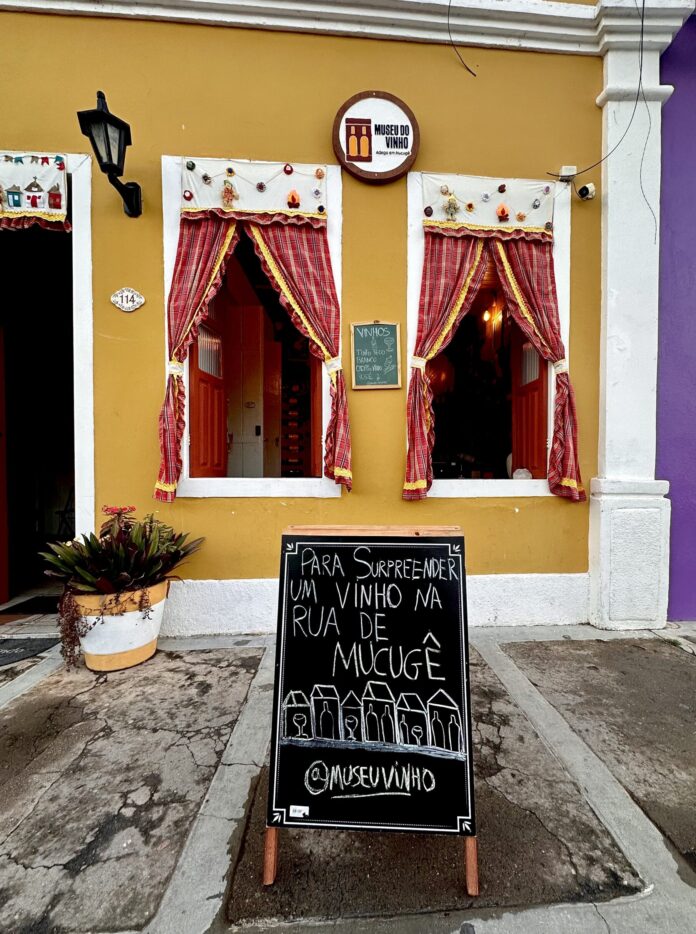 MUSEU DO
VINHO
Adega em Mucugê
114
VINHOS
BRANCO
PARA SURPREENDER
UM VINHO NA
RUA DE
MUCUGÊ
@MUSEUVINHO